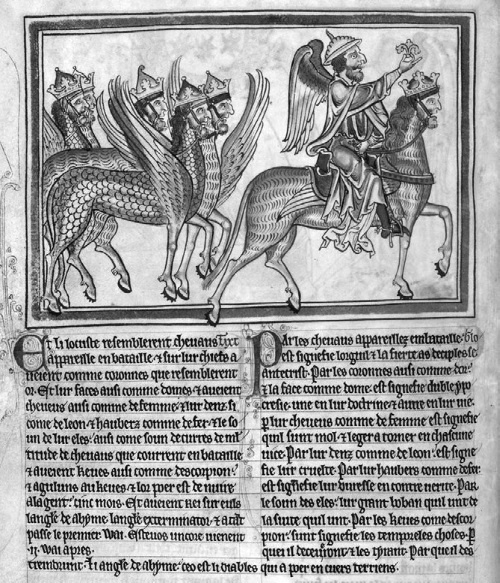 Et li locuste resemblerent chevaus
apareille en bataille ⁊ sur lur chiefs a
veient comme coronnes que resemblerent
or. Et lur faces ausi comme domes ⁊ aveient
chevens ausi comme de femme ⁊ lur denz si
come de leon ⁊ haubers comme de fer ⁊ le so
un de lur eles. ausi come soun de curres de ml
titude de chevaus que courrent en bataille
⁊ aveient keues ausi comme descorpion.
⁊ aguiluns au keues ⁊ lor poer est de nuire
a la gent .cinc mois. Et avoient rei sur eus
langle de abyme langle exterminator ⁊
passe le premer wai. Estevos uncore vienent
.ii. wai apres.
Par les chevaus appareillez en bataille
est signefie lorguil ⁊ la fierte as deciples
antecrist. Par les coronnes ausi comme dor
⁊ la face comme dome. est signefie duble
cresie. une en lur doctrine ⁊ autre en lur vie.
Par lur chevens comme de femme est signefie
qui sunt mol. ⁊ leger a torner en chascune
vice. Par lur denz comme de leon. est signe
fie lur cruelte. Par lur haubers comme de fer
est signefie lur duresse en contre verite. Par
le soun des eles. lur grant loban quil unt de
la suite quil unt. Par les keues come descor
pion. sunt signefie les tempreles choses. P
quei il decerivont ⁊ les Par quei il des
trembrunt. Li angle de abyme. ceo est li diables qui a per en cuers terriens.